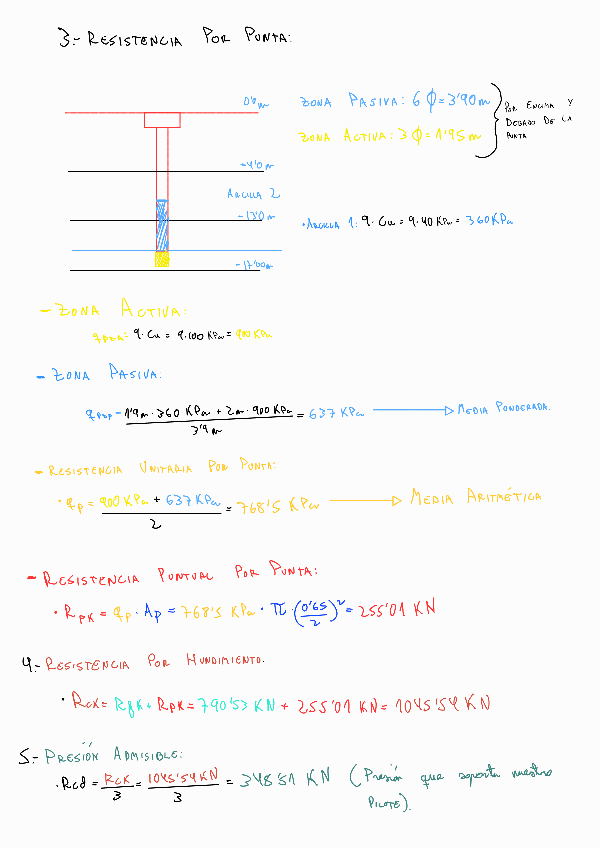 3.- RESISTENCIA POR PUNTA:
0'0 m
ZONA PASIVA: 6 ϕ = 3'90 m
ZONA ACTIVA: 3 ϕ = 1'95 m
POR ENCIMA Y
DEBAJO DE LA
PUNTA
-4'0 m
ARCILLA 2
-13'0 m
• ARCILLA 1: 9 · Cu = 9 · 40 KPa = 360 KPa
-17'00 m
- ZONA ACTIVA:
9 · Cu = 9 · 100 KPa = 900 KPa
- ZONA PASIVA:
qpzp = 1'9 m · 360 KPa + 2 m · 900 KPa / 3'9 m = 637 KPa → MEDIA PONDERADA.
- RESISTENCIA UNITARIA POR PUNTA:
• qp = 900 KPa + 637 KPa / 2 = 768'5 KPa → MEDIA ARITMÉTICA
- RESISTENCIA PUNTUAL POR PUNTA:
• Rpk = qp · Ap = 768'5 KPa · π · (0'65/2)² = 255'01 KN
4.- RESISTENCIA POR HUNDIMIENTO.
• Rck = Rfk + Rpk = 790'53 KN + 255'01 KN = 1045'54 KN
5.- PRESIÓN ADMISIBLE:
• Rcd = Rck / 3 = 1045'54 KN / 3 = 348'51 KN (Presión que soporta nuestro
PILOTE).